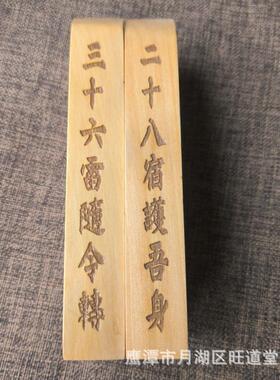 二十八宿護吾身
三十六雷隨令轉
鹰潭市月湖区旺道堂